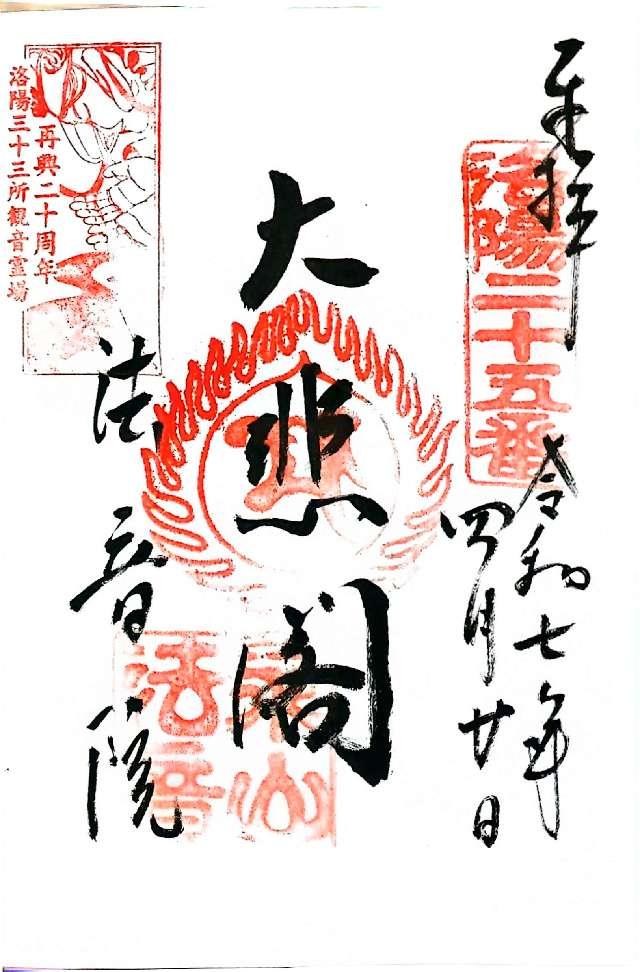 奉拝
洛陽二十五番
令和七年
四月廿日
大悲閣
法音院
再興二十周年
洛陽三十三所観音霊場
法音